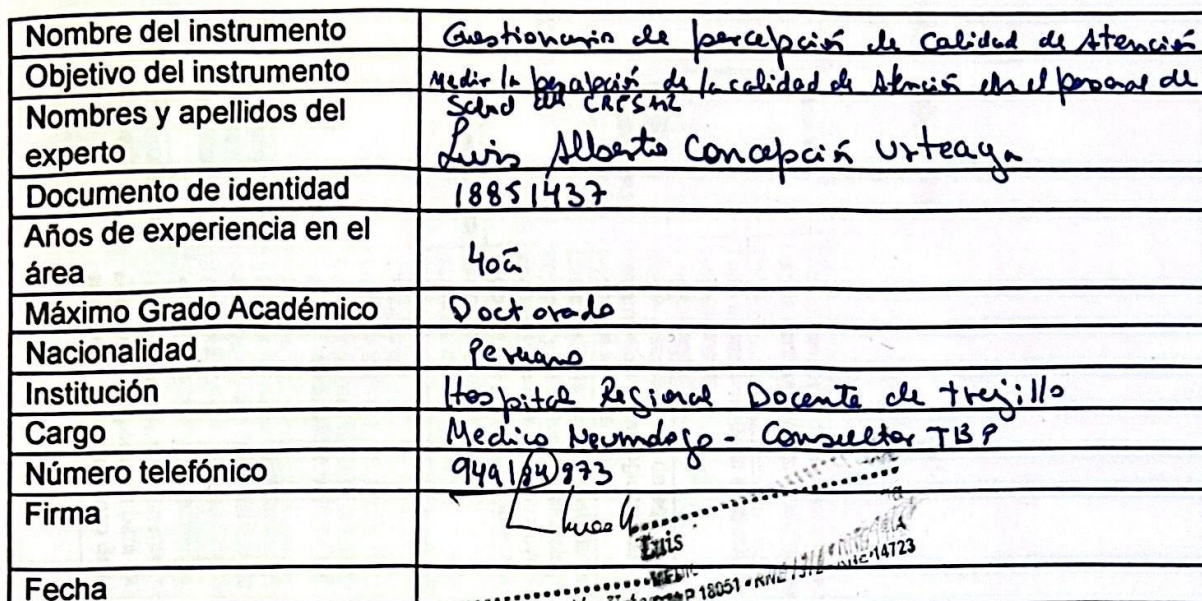 Nombre del instrumento Cuestionario de percepción de Calidad de Atención
Objetivo del instrumento Medir la percepción de la calidad de Atención en el personal de
Salud del
Nombres y apellidos del
experto Luis Alberto Concepción Urteaga
Documento de identidad 18851437
Años de experiencia en el
área 40
Máximo Grado Académico Doctorado
Nacionalidad Peruano
Institución Hospital Regional Docente de Trujillo
Cargo Medico Neumologo - Consultor TBP
Número telefónico 949184973
Firma
Luis
18051 - RNE
14723
Fecha